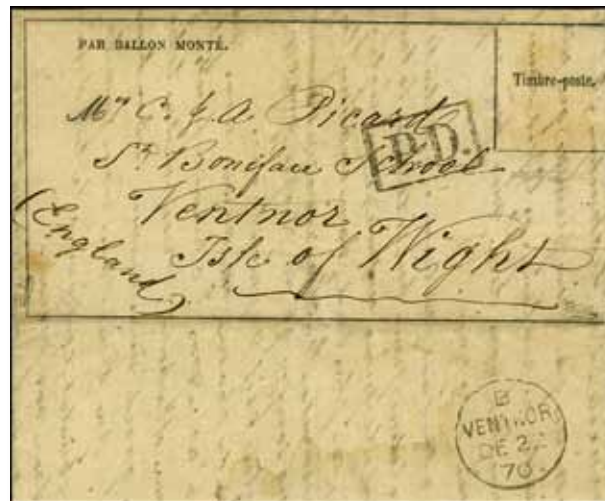 PAR BALLON MONTÉ.
Timbre-poste.
C. J. A. Picard
P.D.
St. Boniface School
Ventnor
(England)
Isle of Wight
B
VENTNOR
DE 2
70